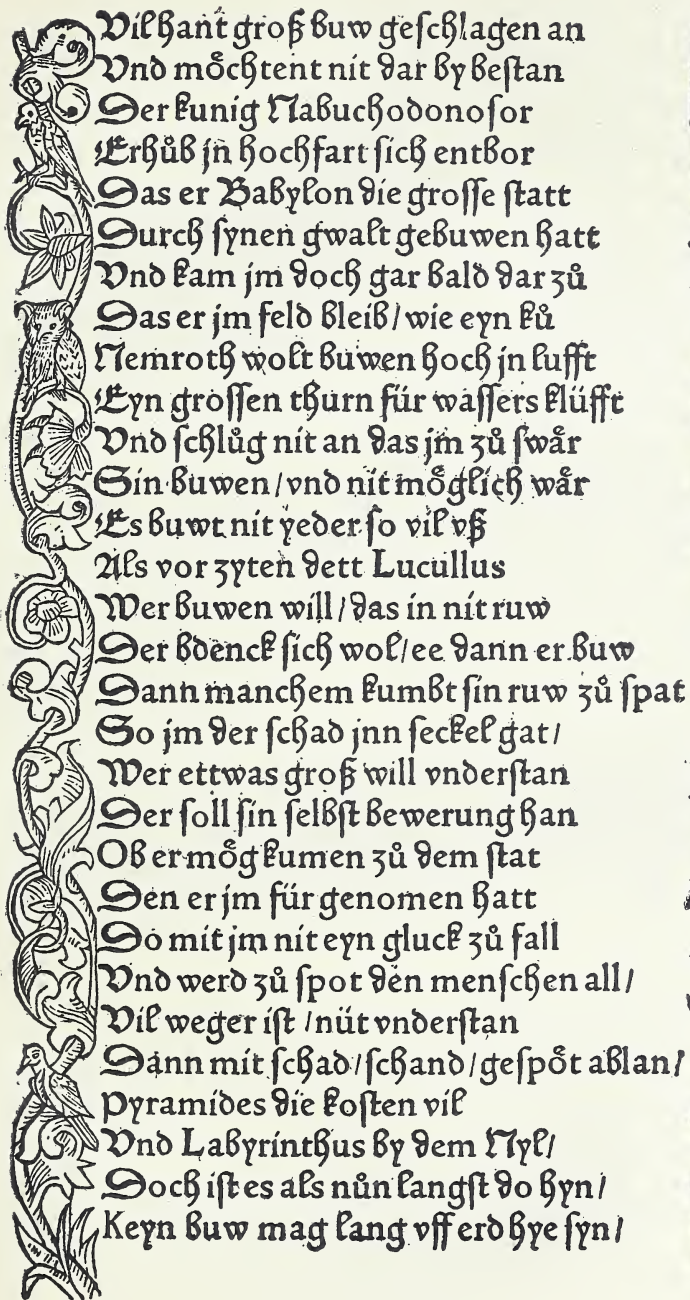 Vil hant groß buw geschlagen an
Vnd moͤchtent nit dar by bestan
Der kunig Nabuchodonosor
Erhuͦb jn hochfart sich entbor
Das er Babylon die grosse statt
Durch synen gwalt gebuwen hatt
Vnd kam jm doch gar bald dar zuͦ
Das er jm feld bleib / wie eyn kuͦ
Nemroth wolt buwen hoch jn lufft
Eyn grossen thurn für wassers klüfft
Vnd schluͦg nit an das jm zuͦ swaͤr
Sin buwen / vnd nit moͤglich waͤr
Es buwt nit yeder so vil vß
Als vor zyten dett Lucullus
Wer buwen will / das in nit ruw
Der bdenck sich wol / ee dann er buw
Dann manchem kumbt sin ruw zuͦ spat
So jm der schad jnn seckel gat /
Wer ettwas groß will vnderstan
Der soll sin selbst bewerung han
Ob er moͤg kumen zuͦ dem stat
Den er jm für genomen hatt
Do mit jm nit eyn gluck zuͦ fall
Vnd werd zuͦ spot den menschen all /
Vil weger ist / nüt vnderstan
Dann mit schad / schand / gespoͤt ablan /
Pyramides die kosten vil
Vnd Labyrinthus by dem Nyl /
Doch ist es als nuͦn langst do hyn /
Keyn buw mag lang vff erd hye syn /